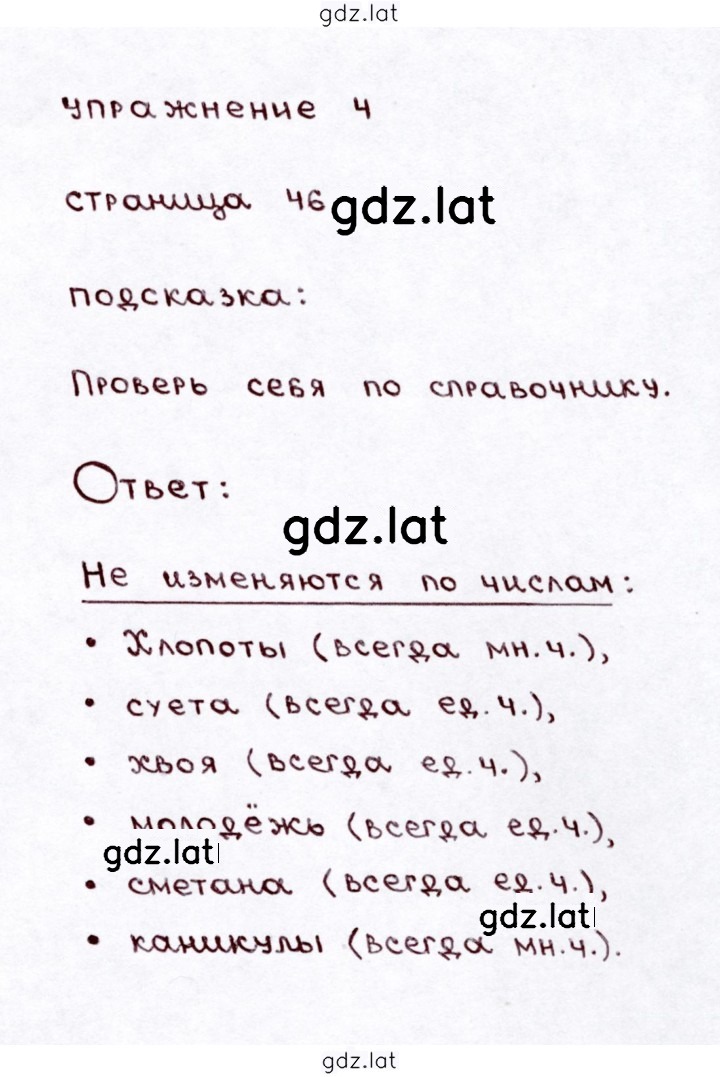 gdz.lat
упражнение 4
страница 46 gdz.lat
подсказка:
Проверь себя по справочнику.
Ответ:
gdz.lat
Не изменяются по числам:
• Хлопоты (всегда мн.ч.),
• суета (всегда ед.ч.),
• хвоя (всегда ед.ч.),
• молодёжь (всегда ед.ч.),
gdz.lat
• сметана (всегда ед.ч.),
gdz.lat
• каникулы (всегда мн.ч.).
gdz.lat